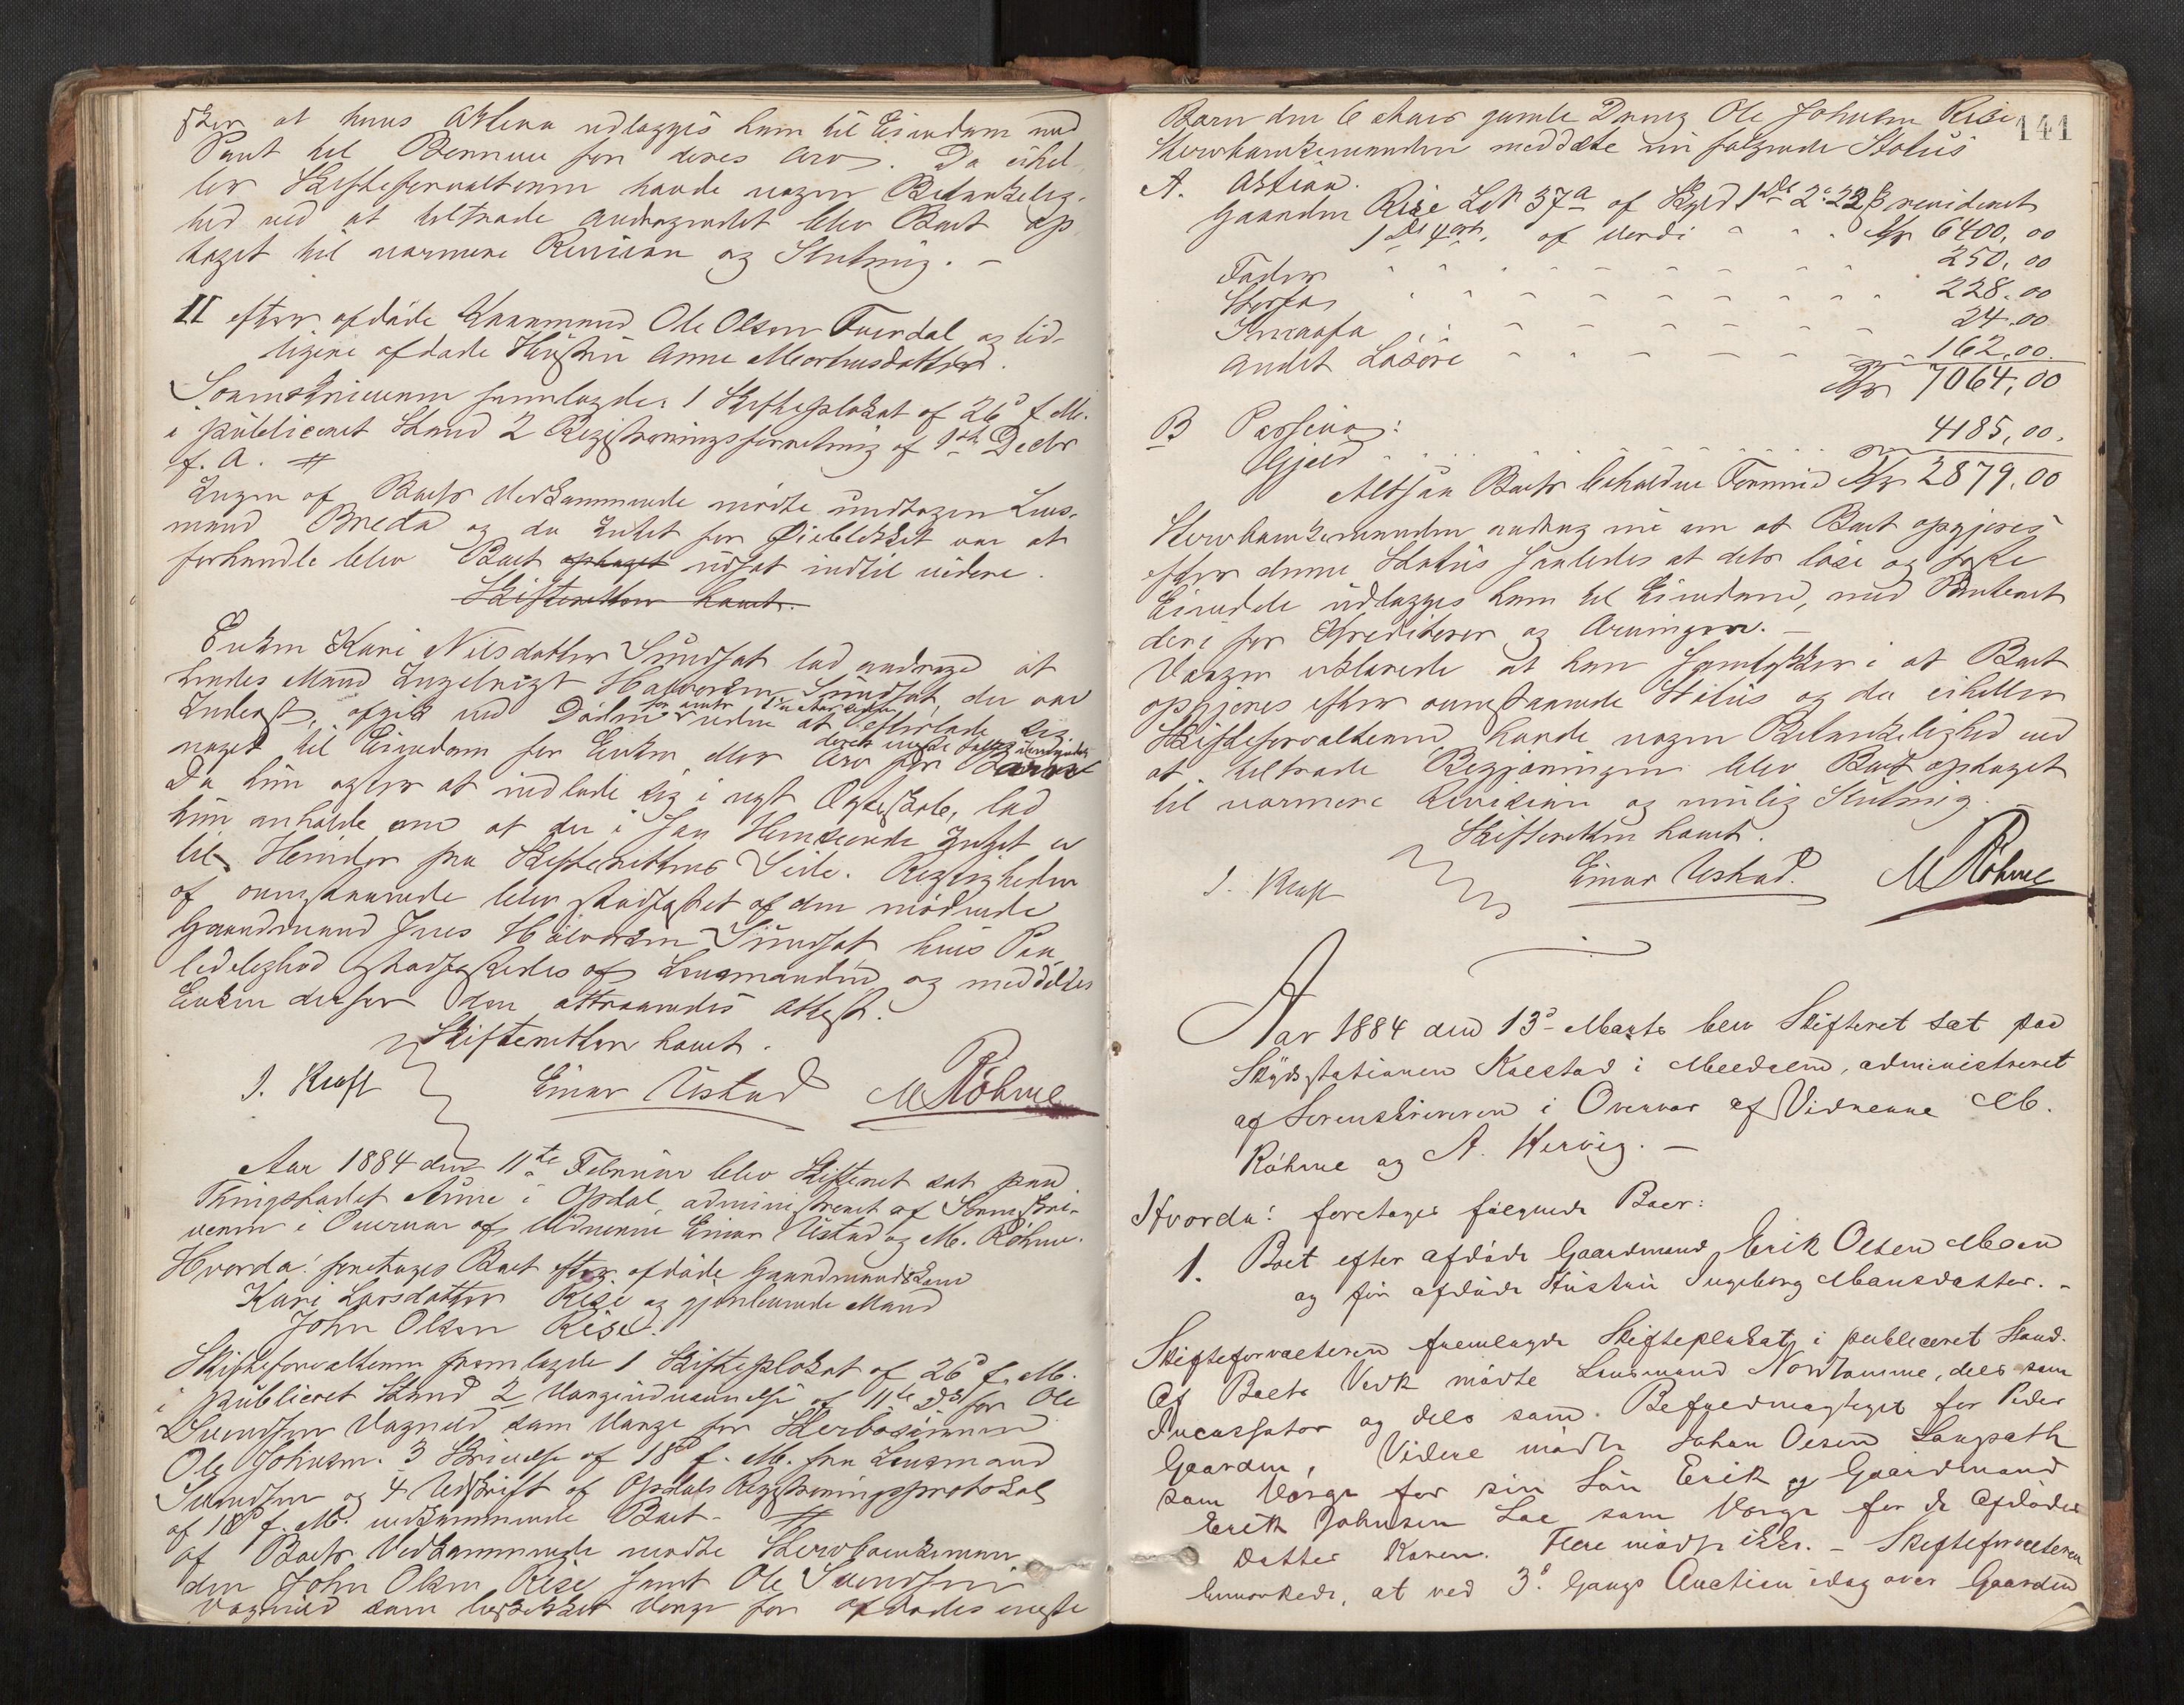 sker at huus Aktiva udlægges ham til Eiendom mod
Pant til Børnene for deres Arv. Da ei hel-
ler Skifteforvalteren havde nogen Betænkelig-
hed ved at tiltræde Andragendet blev Boet op
taget til nærmere Revision og Slutning. –
II efter afdøde Kaarmand Ole Olsen Tverdal og tid-
ligere afdøde Hustru Anne Morhusdatter.
Sorenskriveren fremlagde: 1 Skifteplakat af 26d f. M.
i publiceret Stand 2 Registreringsforretning af 1ste Decbr
f. A. #
Ingen af Boets Vedkommende mødte undtagen Lens-
mand Breda og da Intet for Øieblikket var at
forhandle blev Boet optaget udsat indtil videre.
Skifteretten hævet.
Enken Kari Nilsdatter Sundset lod andrage at
hendes Mand Ingebrigt Halvorsen Sundset, der var
Inderst, afgik ved Døden for omtr. uden at efterlade sig
noget til Eiendom for Enken eller Arv for
Da hun agter at indlade sig i nyt Ægteskab, lod
hun anholde om at der i saa Henseende Intet er
til Hinder fra Skifterettens Side. Rigtigheden
af ovenstaaende blev stadfæstet af den mødende
Gaardmand Jens Halvorsen Sundset hvis Paa
lidelighed stadfæstedes af Lensmanden og meddeltes
Enken derfor den attraaede Attest.
Skifteretten hævet.
I. Kraft Einar Ustad M Røhme
Aar 1884 den 11te Februar blev Skifteret sat paa
Thingstedet Aune i Opdal, administreret af Sorenskri-
veren i Overvær af Vidnerne Einar Ustad og M. Røhme.
Hvorda: foretoges Boet efter afdøde Gaardmandskone
Kari Larsdatter Rise og gjenlevende Mand
John Olsen Rise.
Skifteforvalteren fremlagde 1 Skifteplakat af 26d f. M.
i publiceret Stand 2 Værgeudnævnelse af 11te Ds for Ole
Sivertsen Vognild som Værge for Sterbosønnen
Ole Johnsen. 3 Skrivelse af 18d f. M. fra Lensmand
Sivertsen og 4 Udskrift af Opdals Registreringsprotokol
af 18d f. M. vedkommende Boet. #
Af Boets Vedkommende mødte Stervboenkeman
den John Olsen Rise samt Ole Sivertsen
Vognild som beskikket Værge for afdødes eneste
141
Barn den 6 Aars gamle Dreng Ole Johnsen Rise
Stervboenkemanden meddelte nu følgende Status
A. Aktiva.
Gaarden Rise Lb 37a af Skyld 1 Dlr 2 22 ß revideret
1 Dlr 4 ort. af Værdi Kr 6400,00
Foder 250,00
Storfæ 228.00
Smaafæ 24.00
Andet Løsøre 162,00.
Kr 7064,00
B Passiva:
Gjæld 4185,00.
Altsaa Boets beholdne Formue Kr 2879,00
Stervboenkemanden androg nu om at Boet opgjøres
efter denne Status saaledes at dets løse og faste
Eiendele udlægges ham til Eiendom, mod Panteret
deri for Kreditorer og Arvinger. –
Værgen erklærede at han samtykker i at Boet
opgjøres efter ovenstaaende Status og da ei heller
Skifteforvalteren havde nogen Betænkelighed ved
at tiltræde Begjæringen blev Boet optaget
til nærmere Revision og mulig Slutning. –
Skifteretten hævet.
I. Kraft Einar Ustad. M Røhme
Aar 1884 den 13d Marts blev Skifteret sat paa
Skydsstationen Kalstad i Meldalen, administreret
af Sorenskriveren i Overvær af Vidnerne M.
Røhme og A. Hervig. –
Hvorda: foretoges følgende Boer:
1. Boet efter afdøde Gaardmand Erik Olsen Moen
og før afdøde Hustru Ingeborg Monsdatter. –
Skifteforvalteren fremlagde Skifteplakat i publiceret Stand.
Af Boets Vedk mødte Lensmand Norstamme, dels som
Incassator og dels som Befuldmægtiget for Peder
Gaarden, Videre mødte Johan Olsen Langseth
som Værge for sin Søn Erik og Gaardmand
Erik Johnsen Loe som Værge for de Afdødes
Datter Karen. Flere mødte ikke. – Skifteforvalteren
bemærkede, at ved 3d Gangs Auction idag over Gaarden